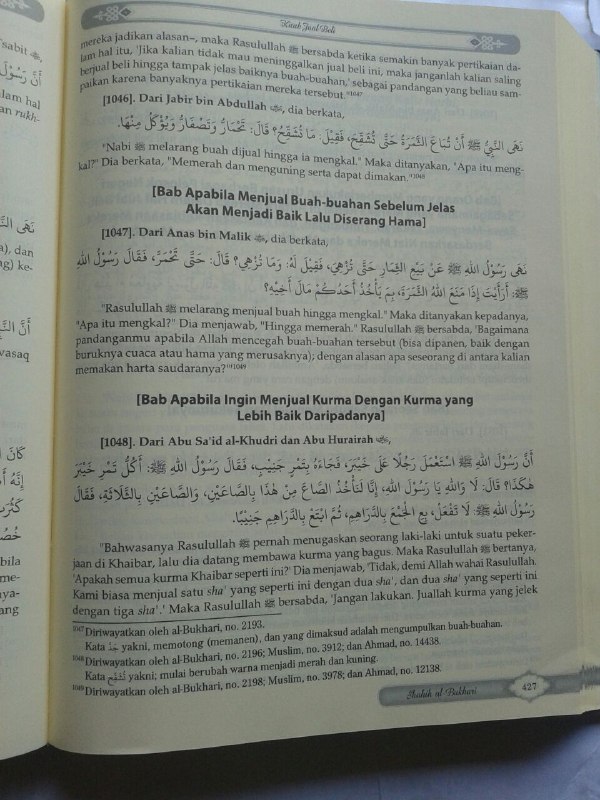 Kitab Jual Beli
mereka jadikan alasan–, maka Rasulullah ﷺ bersabda ketika semakin banyak pertikaian da-
lam hal itu, 'Jika kalian tidak mau meninggalkan jual beli ini, maka janganlah kalian saling
berjual beli hingga tampak jelas baiknya buah-buahan,' sebagai pandangan yang beliau sam-
paikan karena banyaknya pertikaian mereka tersebut."1047
[1046]. Dari Jabir bin Abdullah , dia berkata,
نَهَى النَّبِيُّ ﷺ أَنْ تُبَاعَ الثَّمَرَةُ حَتَّى تُشَقِّحَ، فَقِيْلَ: مَا تُشَقِّحُ؟ قَالَ: تَحْمَارُّ وَتَصْفَارُّ وَيُؤْكَلُ مِنْهَا.
"Nabi ﷺ melarang buah dijual hingga ia mengkal." Maka ditanyakan, "Apa itu meng-
kal?" Dia berkata, "Memerah dan menguning serta dapat dimakan."1048
[Bab Apabila Menjual Buah-buahan Sebelum Jelas
Akan Menjadi Baik Lalu Diserang Hama]
[1047]. Dari Anas bin Malik , dia berkata,
نَهَى رَسُوْلُ اللهِ ﷺ عَنْ بَيْعِ الثِّمَارِ حَتَّى تُزْهِيَ، فَقِيْلَ لَهُ: وَمَا تُزْهِي؟ قَالَ: حَتَّى تَحْمَرَّ، فَقَالَ رَسُوْلُ اللهِ
ﷺ: أَرَأَيْتَ إِذَا مَنَعَ اللهُ الثَّمَرَةَ، بِمَ يَأْخُذُ أَحَدُكُمْ مَالَ أَخِيْهِ؟
"Rasulullah ﷺ melarang menjual buah hingga mengkal." Maka ditanyakan kepadanya,
"Apa itu mengkal?" Dia menjawab, "Hingga memerah." Rasulullah ﷺ bersabda, 'Bagaimana
pandanganmu apabila Allah mencegah buah-buahan tersebut (bisa dipanen, baik dengan
buruknya cuaca atau hama yang merusaknya); dengan alasan apa seseorang di antara kalian
memakan harta saudaranya?'"1049
[Bab Apabila Ingin Menjual Kurma Dengan Kurma yang
Lebih Baik Daripadanya]
[1048]. Dari Abu Sa'id al-Khudri dan Abu Hurairah ,
أَنَّ رَسُوْلَ اللهِ ﷺ اسْتَعْمَلَ رَجُلًا عَلَى خَيْبَرَ، فَجَاءَهُ بِتَمْرٍ جَنِيْبٍ، فَقَالَ رَسُوْلُ اللهِ ﷺ: أَكُلُّ تَمْرِ خَيْبَرَ
هٰكَذَا؟ قَالَ: لَا وَاللهِ يَا رَسُوْلَ اللهِ، إِنَّا لَنَأْخُذُ الصَّاعَ مِنْ هٰذَا بِالصَّاعَيْنِ، وَالصَّاعَيْنِ بِالثَّلَاثَةِ، فَقَالَ
رَسُوْلُ اللهِ ﷺ: لَا تَفْعَلْ، بِعِ الْجَمْعَ بِالدَّرَاهِمِ، ثُمَّ ابْتَعْ بِالدَّرَاهِمِ جَنِيْبًا.
"Bahwasanya Rasulullah ﷺ pernah menugaskan seorang laki-laki untuk suatu peker-
jaan di Khaibar, lalu dia datang membawa kurma yang bagus. Maka Rasulullah ﷺ bertanya,
'Apakah semua kurma Khaibar seperti ini?' Dia menjawab, 'Tidak, demi Allah wahai Rasulullah.
Kami biasa menjual satu sha' yang seperti ini dengan dua sha', dan dua sha' yang seperti ini
dengan tiga sha'.' Maka Rasulullah ﷺ bersabda, 'Jangan lakukan. Juallah kurma yang jelek
1047 Diriwayatkan oleh al-Bukhari, no. 2193.
Kata جَدَّ yakni, memotong (memanen), dan yang dimaksud adalah mengumpulkan buah-buahan.
1048 Diriwayatkan oleh al-Bukhari, no. 2196; Muslim, no. 3912; dan Ahmad, no. 14438.
Kata تُشَقِّحُ yakni; mulai berubah warna menjadi merah dan kuning.
1049 Diriwayatkan oleh al-Bukhari, no. 2198; Muslim, no. 3978; dan Ahmad, no. 12138.
Shahih al Bukhari 427